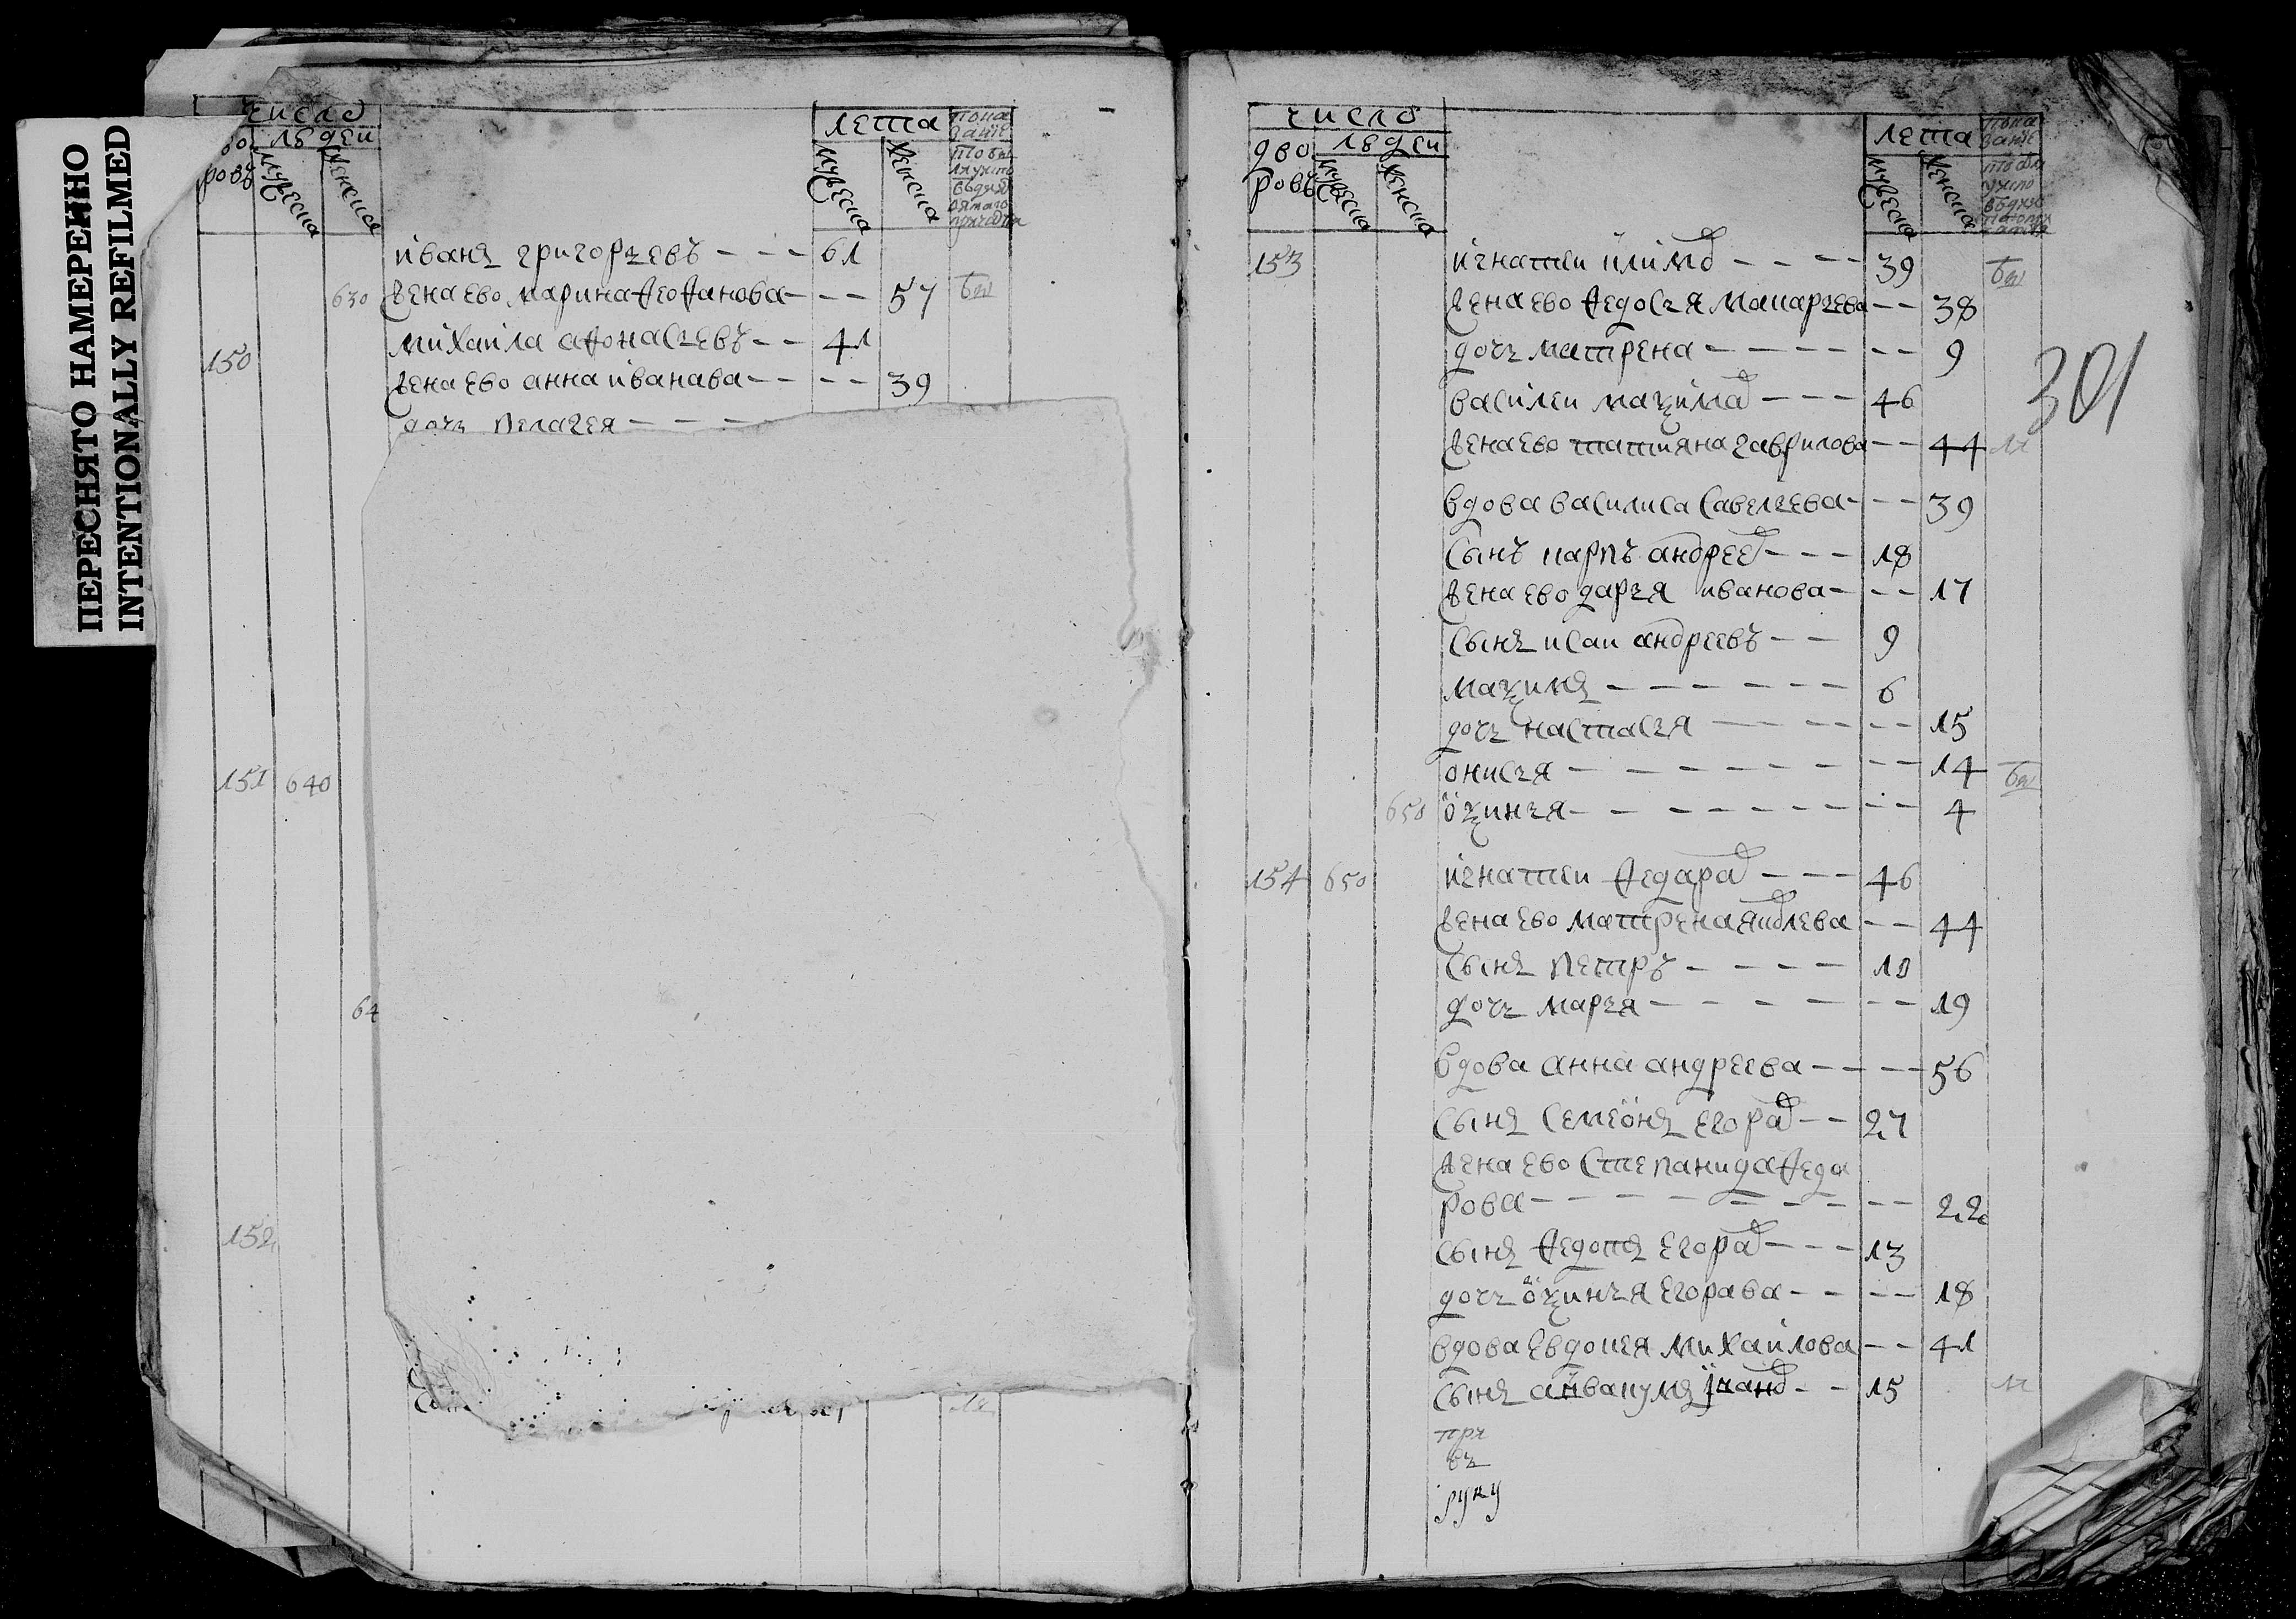 ПЕРЕСНЯТО НАМЕРЕННО
INTENTIONALLY REFILMED
число
людеи
ровъ
мужеска
женска
лета
мужеска
женска
иванъ григорьевъ - - - 61
630 жена ево марина феофанова - - - 57
150 михаила афонасьевъ - - 41
жена ево анна иванава - - - - 39
дочь пелагея - - -
151 640
64
152
301
число
дво
ровъ
людеи
мужеска
женска
лета
мужеска
женска
153 игнатеи климо - - - - 39
жена ево федосья макарьева - - 38
дочь матрена - - - - - - - 9
василеи маѯима - - - 46
жена ево татияна гаврилова - - 44
вдова василиса савельева - - - 39
сынъ карпъ андрее - - - 18
жена ево дарья иванова - - - 17
сынъ исаи андреевъ - - 9
маѯимъ - - - - - - 6
дочь настасья - - - - - - 15
онисья - - - - - - - - - 14
650 оѯинья - - - - - - - - - 4
154 650 игнатеи федара - - - 46
жена ево матрена яковлева - - 44
сынъ петръ - - - - 10
дочь марья - - - - - - - 19
вдова анна андреева - - - - 56
сынъ семеонъ егора - - 27
жена ево степанида феда
рова - - - - - - - - - 22
сынъ федотъ егора - - - 13
дочь оѯинья егорава - - - - 18
вдова евдокея михаилова - - 41
сынъ - - 15
руку